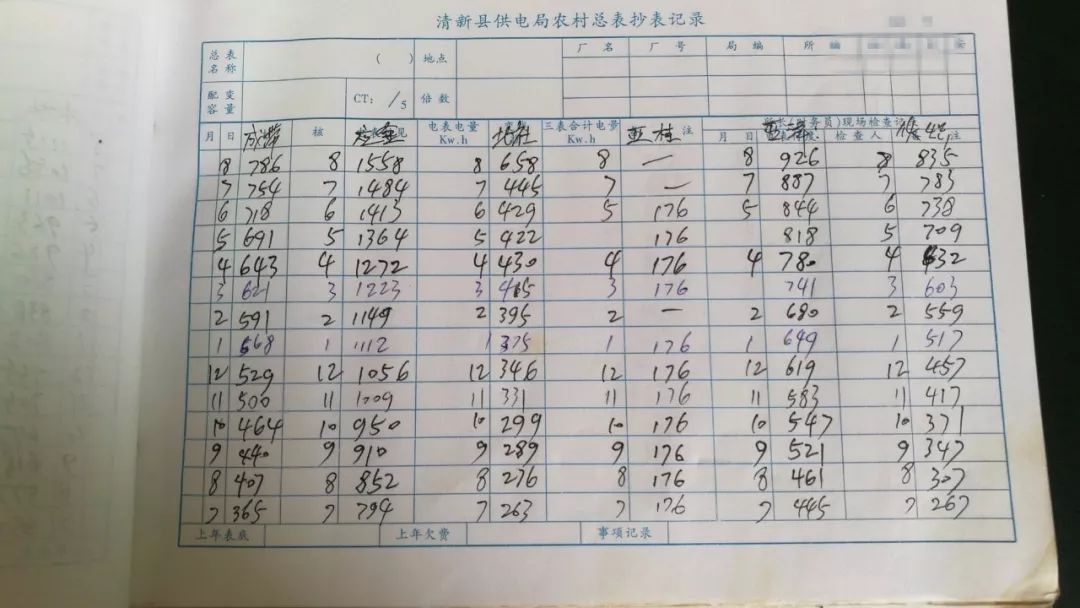 清新县供电局农村总表抄表记录
总表名称 ( ) 地点 厂名 厂号 局编 所编
配变容量 CT: /5 倍数
月 日 核 见 电表电量 Kw.h 三表合计电量 Kw.h 亚村 注 务员)现场检查 月 日 检查人 注
8 786 8 1558 8 658 8 — 8 926 8 835
7 754 7 1484 7 445 7 — 7 887 7 783
6 718 6 1413 6 429 5 176 5 844 6 738
5 691 5 1364 5 422 176 818 5 709
4 643 4 1272 4 430 4 176 4 780 4 632
3 621 3 1223 3 415 3 176 741 3 603
2 591 2 1149 2 395 2 — 2 680 2 559
1 568 1 1112 1 375 1 176 1 649 1 517
12 529 12 1056 12 346 12 176 12 619 12 457
11 500 11 1009 11 331 11 176 11 583 11 417
10 464 10 950 10 299 10 176 10 547 10 371
9 440 9 910 9 289 9 176 9 521 9 347
8 407 8 852 8 276 8 176 8 461 8 307
7 365 7 794 7 263 7 176 7 445 7 267
上年表底 上年欠费 事项记录